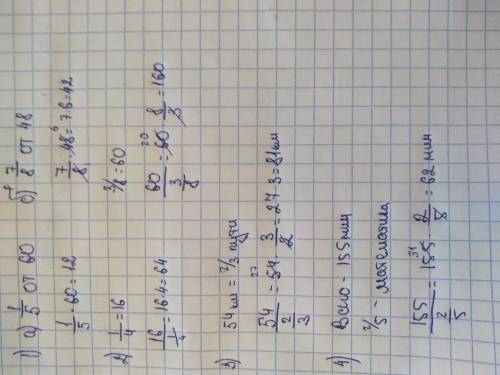 1) а) 1/5 от 60 б) 7/8 от 48
1/5 · 60 = 12 7/8 · 48 6 = 7·6 = 42
2) 1/4 = 16 3/8 = 60
16 / 1/4 = 16·4 = 64 60 / 3/8 = 60 20 · 8/3 = 160
3) 54 км = 2/3 пути
54 / 2/3 = 54 27 · 3/2 = 27·3 = 81 км
4) Всего - 155 мин
2/5 - математика
155 / 2/5 = 155 31 · 2/5 = 62 мин